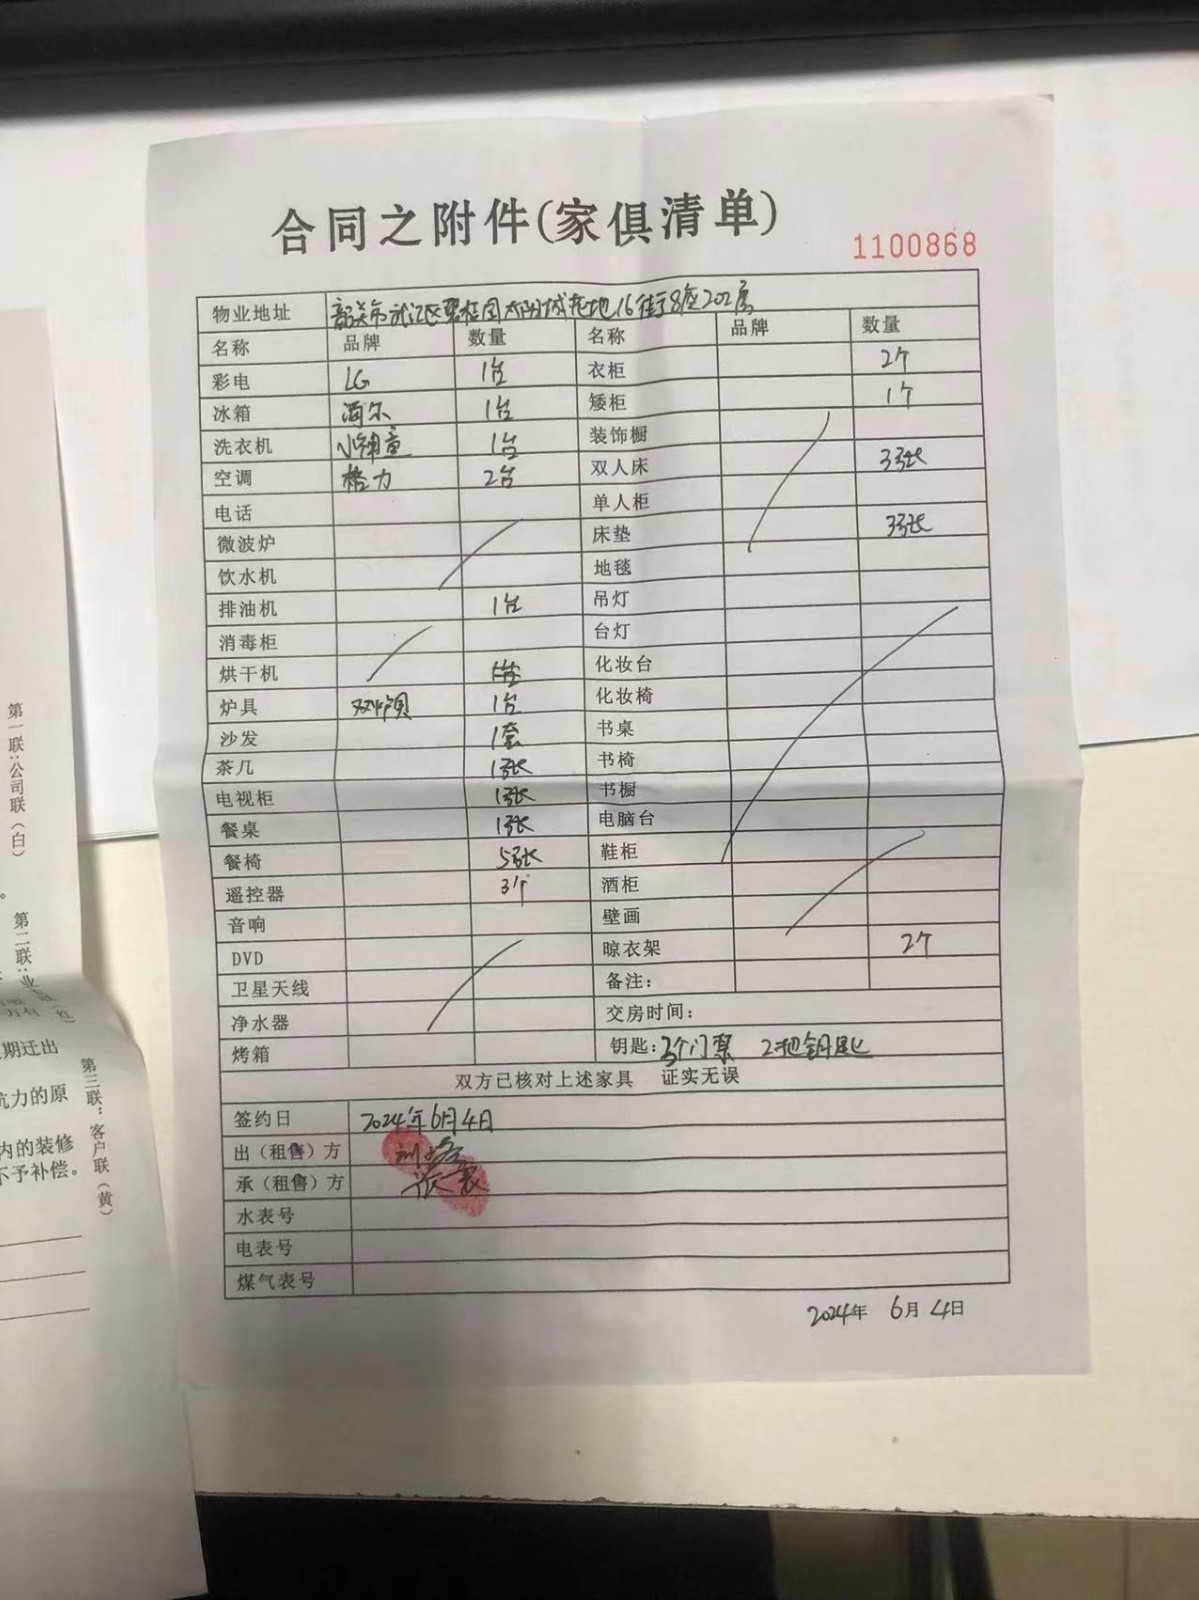 合同之附件(家俱清单)
1100868
物业地址 韶关市武江区碧桂园太阳城花地16街8座202房
名称 品牌 数量 名称 品牌 数量
彩电 LG 1台 衣柜 2个
冰箱 海尔 1台 矮柜 1个
洗衣机 小鸭 1台 装饰橱
空调 格力 2台 双人床 3张
电话 单人柜
微波炉 床垫 3张
饮水机 地毯
排油机 1台 吊灯
消毒柜 台灯
烘干机 化妆台
炉具 1台 化妆椅
沙发 1套 书桌
茶几 1张 书椅
电视柜 1张 书橱
餐桌 1张 电脑台
餐椅 5张 鞋柜
遥控器 3个 酒柜
音响 壁画
DVD 晾衣架 2个
卫星天线 备注：
净水器 交房时间：
烤箱 钥匙：3个门禁 2把钥匙
双方已核对上述家具 证实无误
签约日 2024年6月4日
出（租售）方
承（租售）方
水表号
电表号
煤气表号
2024年 6月 4日
第一联：公司联（白）
第二联：业
第三联：客户联（黄）
期迁出
抗力的原
内的装修
不予补偿。